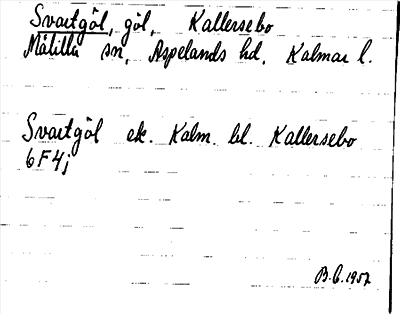 Svartgöl, göl, Kallersebo
Målilla sn, Aspelands hd, Kalmar l.
Svartgöl ek. Kalm. bl. Kallersebo
6F4j
B.C. 1957